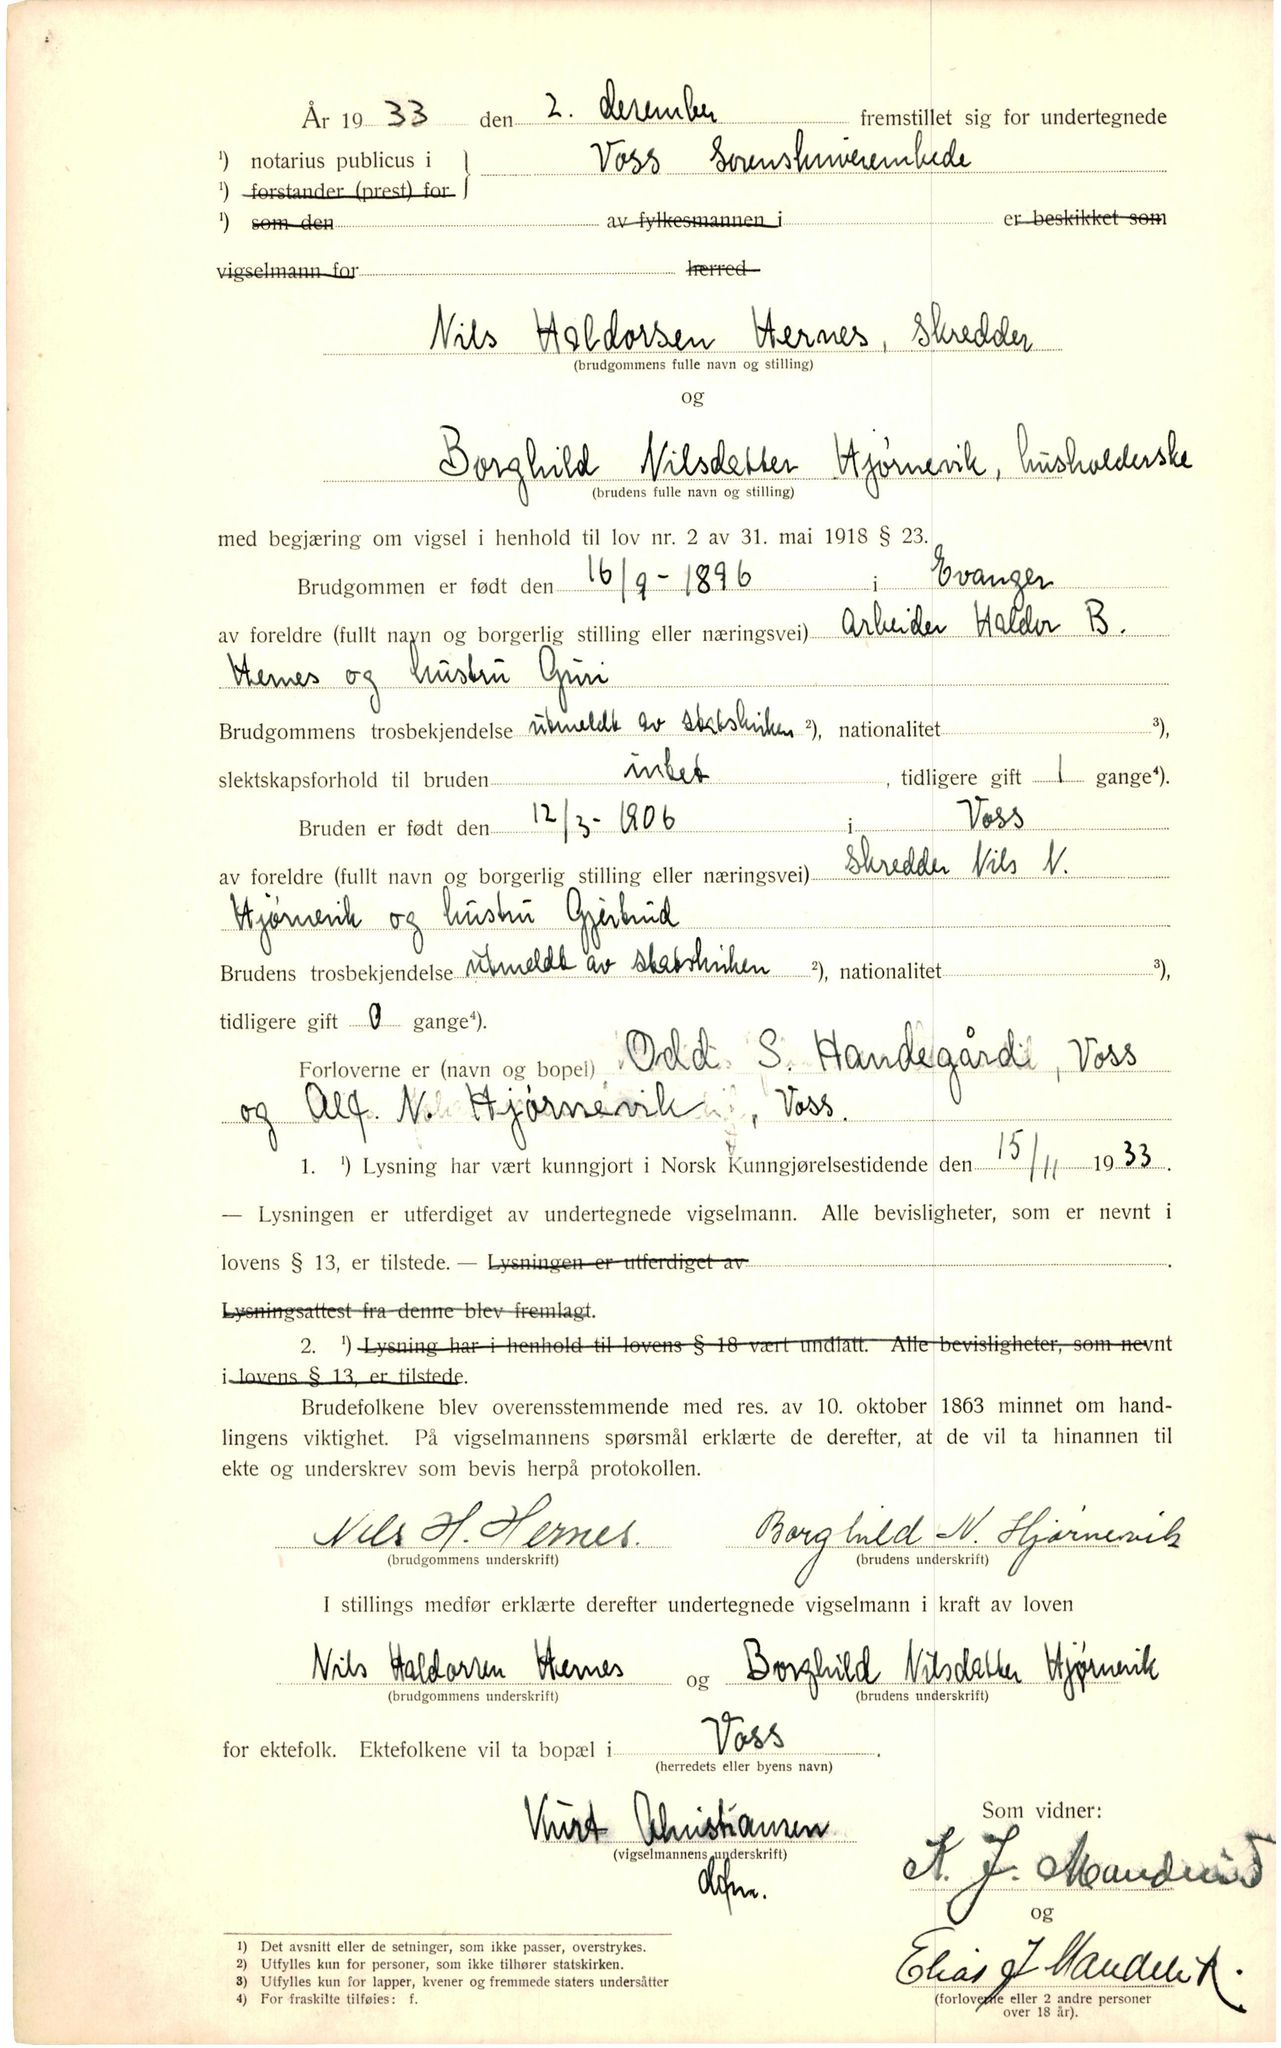 År 1933 den 2. desember fremstillet sig for undertegnede
1) notarius publicus i } Voss Sorenskriverembede
1) forstander (prest) for
1) som den av fylkesmannen i er beskikket som
vigselmann for herred
Nils Haldorsen Hernes, skredder
(brudgommens fulle navn og stilling)
og
Borghild Nilsdatter Hjørnevik, husholderske
(brudens fulle navn og stilling)
med begjæring om vigsel i henhold til lov nr. 2 av 31. mai 1918 § 23.
Brudgommen er født den 16/9-1896 i Evanger
av foreldre (fullt navn og borgerlig stilling eller næringsvei) Arbeider Haldor B.
Hernes og hustru Guri
Brudgommens trosbekjendelse utmeldt av statskirken 2), nationalitet 3),
slektskapsforhold til bruden intet, tidligere gift 1 gange4).
Bruden er født den 12/3-1906 i Voss
av foreldre (fullt navn og borgerlig stilling eller næringsvei) Skredder Nils N.
Hjørnevik og hustru Gjertrud
Brudens trosbekjendelse utmeldt av statskirken 2), nationalitet 3),
tidligere gift 0 gange4).
Forloverne er (navn og bopel) Odd S. Handegård, Voss
og Alf. N. Hjørnevik, Voss.
1. 1) Lysning har vært kunngjort i Norsk Kunngjørelsestidende den 15/11 1933.
— Lysningen er utferdiget av undertegnede vigselmann. Alle bevisligheter, som er nevnt i
lovens § 13, er tilstede. — Lysningen er utferdiget av .
Lysningsattest fra denne blev fremlagt.
2. 1) Lysning har i henhold til lovens § 18 vært undlatt. Alle bevisligheter, som nevnt
i lovens § 13, er tilstede.
Brudefolkene blev overensstemmende med res. av 10. oktober 1863 minnet om hand-
lingens viktighet. På vigselmannens spørsmål erklærte de derefter, at de vil ta hinannen til
ekte og underskrev som bevis herpå protokollen.
Nils H. Hernes. Borghild N. Hjørnevik
(brudgommens underskrift) (brudens underskrift)
I stillings medfør erklærte derefter undertegnede vigselmann i kraft av loven
Nils Haldorsen Hernes og Borghild Nilsdatter Hjørnevik
(brudgommens underskrift) (brudens underskrift)
for ektefolk. Ektefolkene vil ta bopæl i Voss.
(herredets eller byens navn)
Kurt Christiansen
(vigselmannens underskrift)
Som vidner:
K. J.
og
Elias J
(forloverne eller 2 andre personer
over 18 år).
1) Det avsnitt eller de setninger, som ikke passer, overstrykes.
2) Utfylles kun for personer, som ikke tilhører statskirken.
3) Utfylles kun for lapper, kvener og fremmede staters undersåtter
4) For fraskilte tilføies: f.